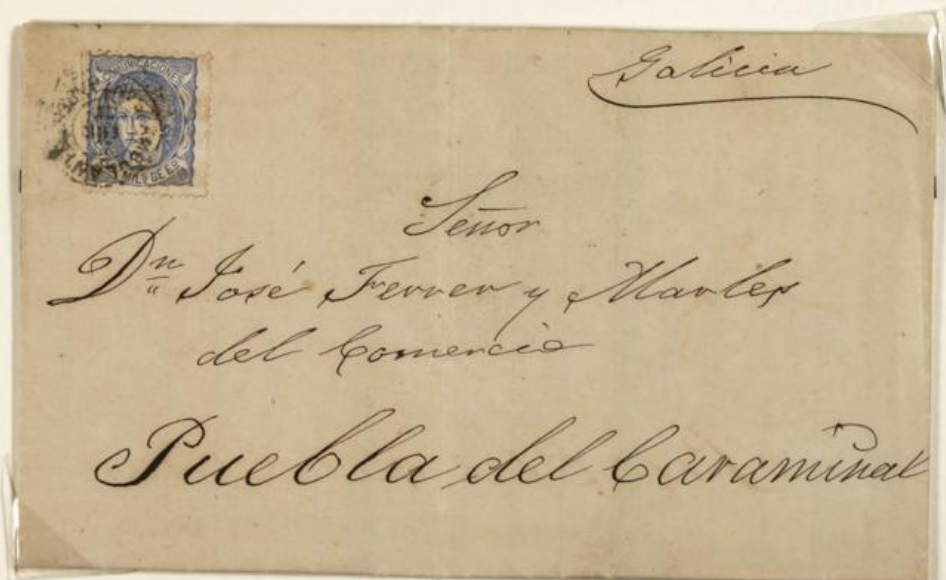 Galicia
COMUNICACIONES
MILS DE ES
Señor
Dn José Ferrer y Marles
del Comercio
Puebla del Caramiñal